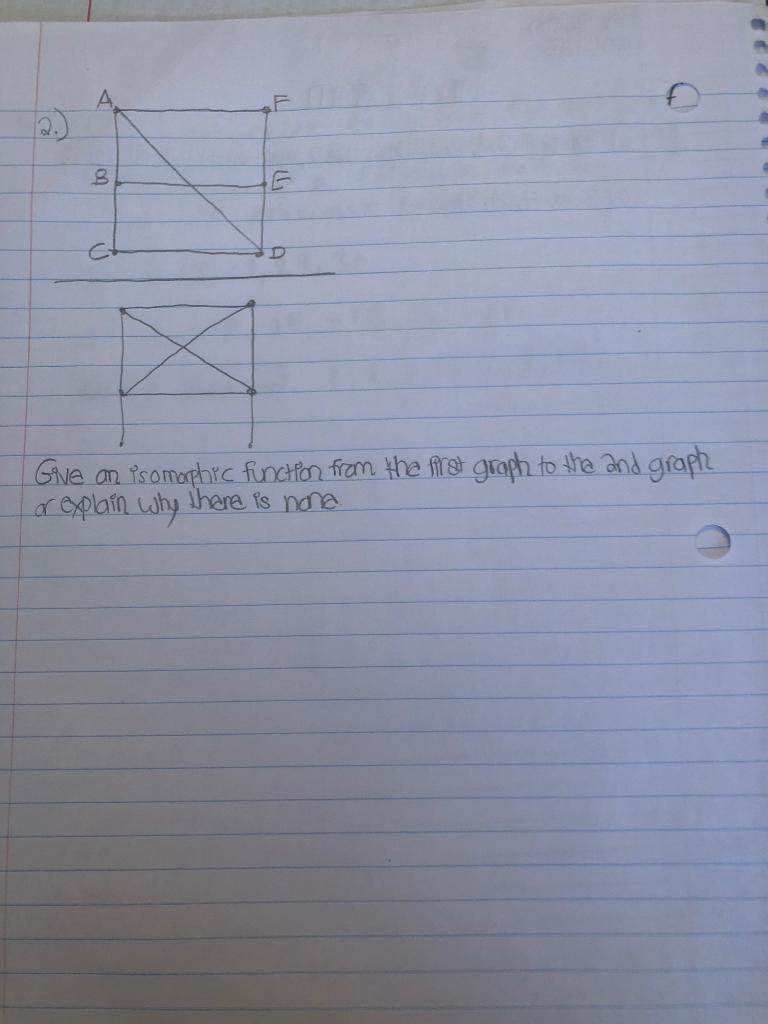 A F
2.)
B E
C D
Give an isomorphic function from the first graph to the 2nd graph
or explain why there is none.